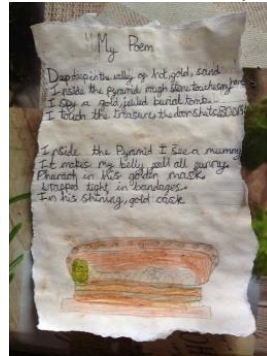 "My Poem
Deep deep in the valley of hot, gold, sand
Inside the pyramid rough stone touches my hand
I spy a gold, jewled burial tomb.
I touch the treasure, the door shuts BOOM!
Inside the Pyramid I see a mummy
It makes my belly roll all runny.
Pharaoh in his golden mask,
Wrapped tight in bandages.
In his shining, gold cask